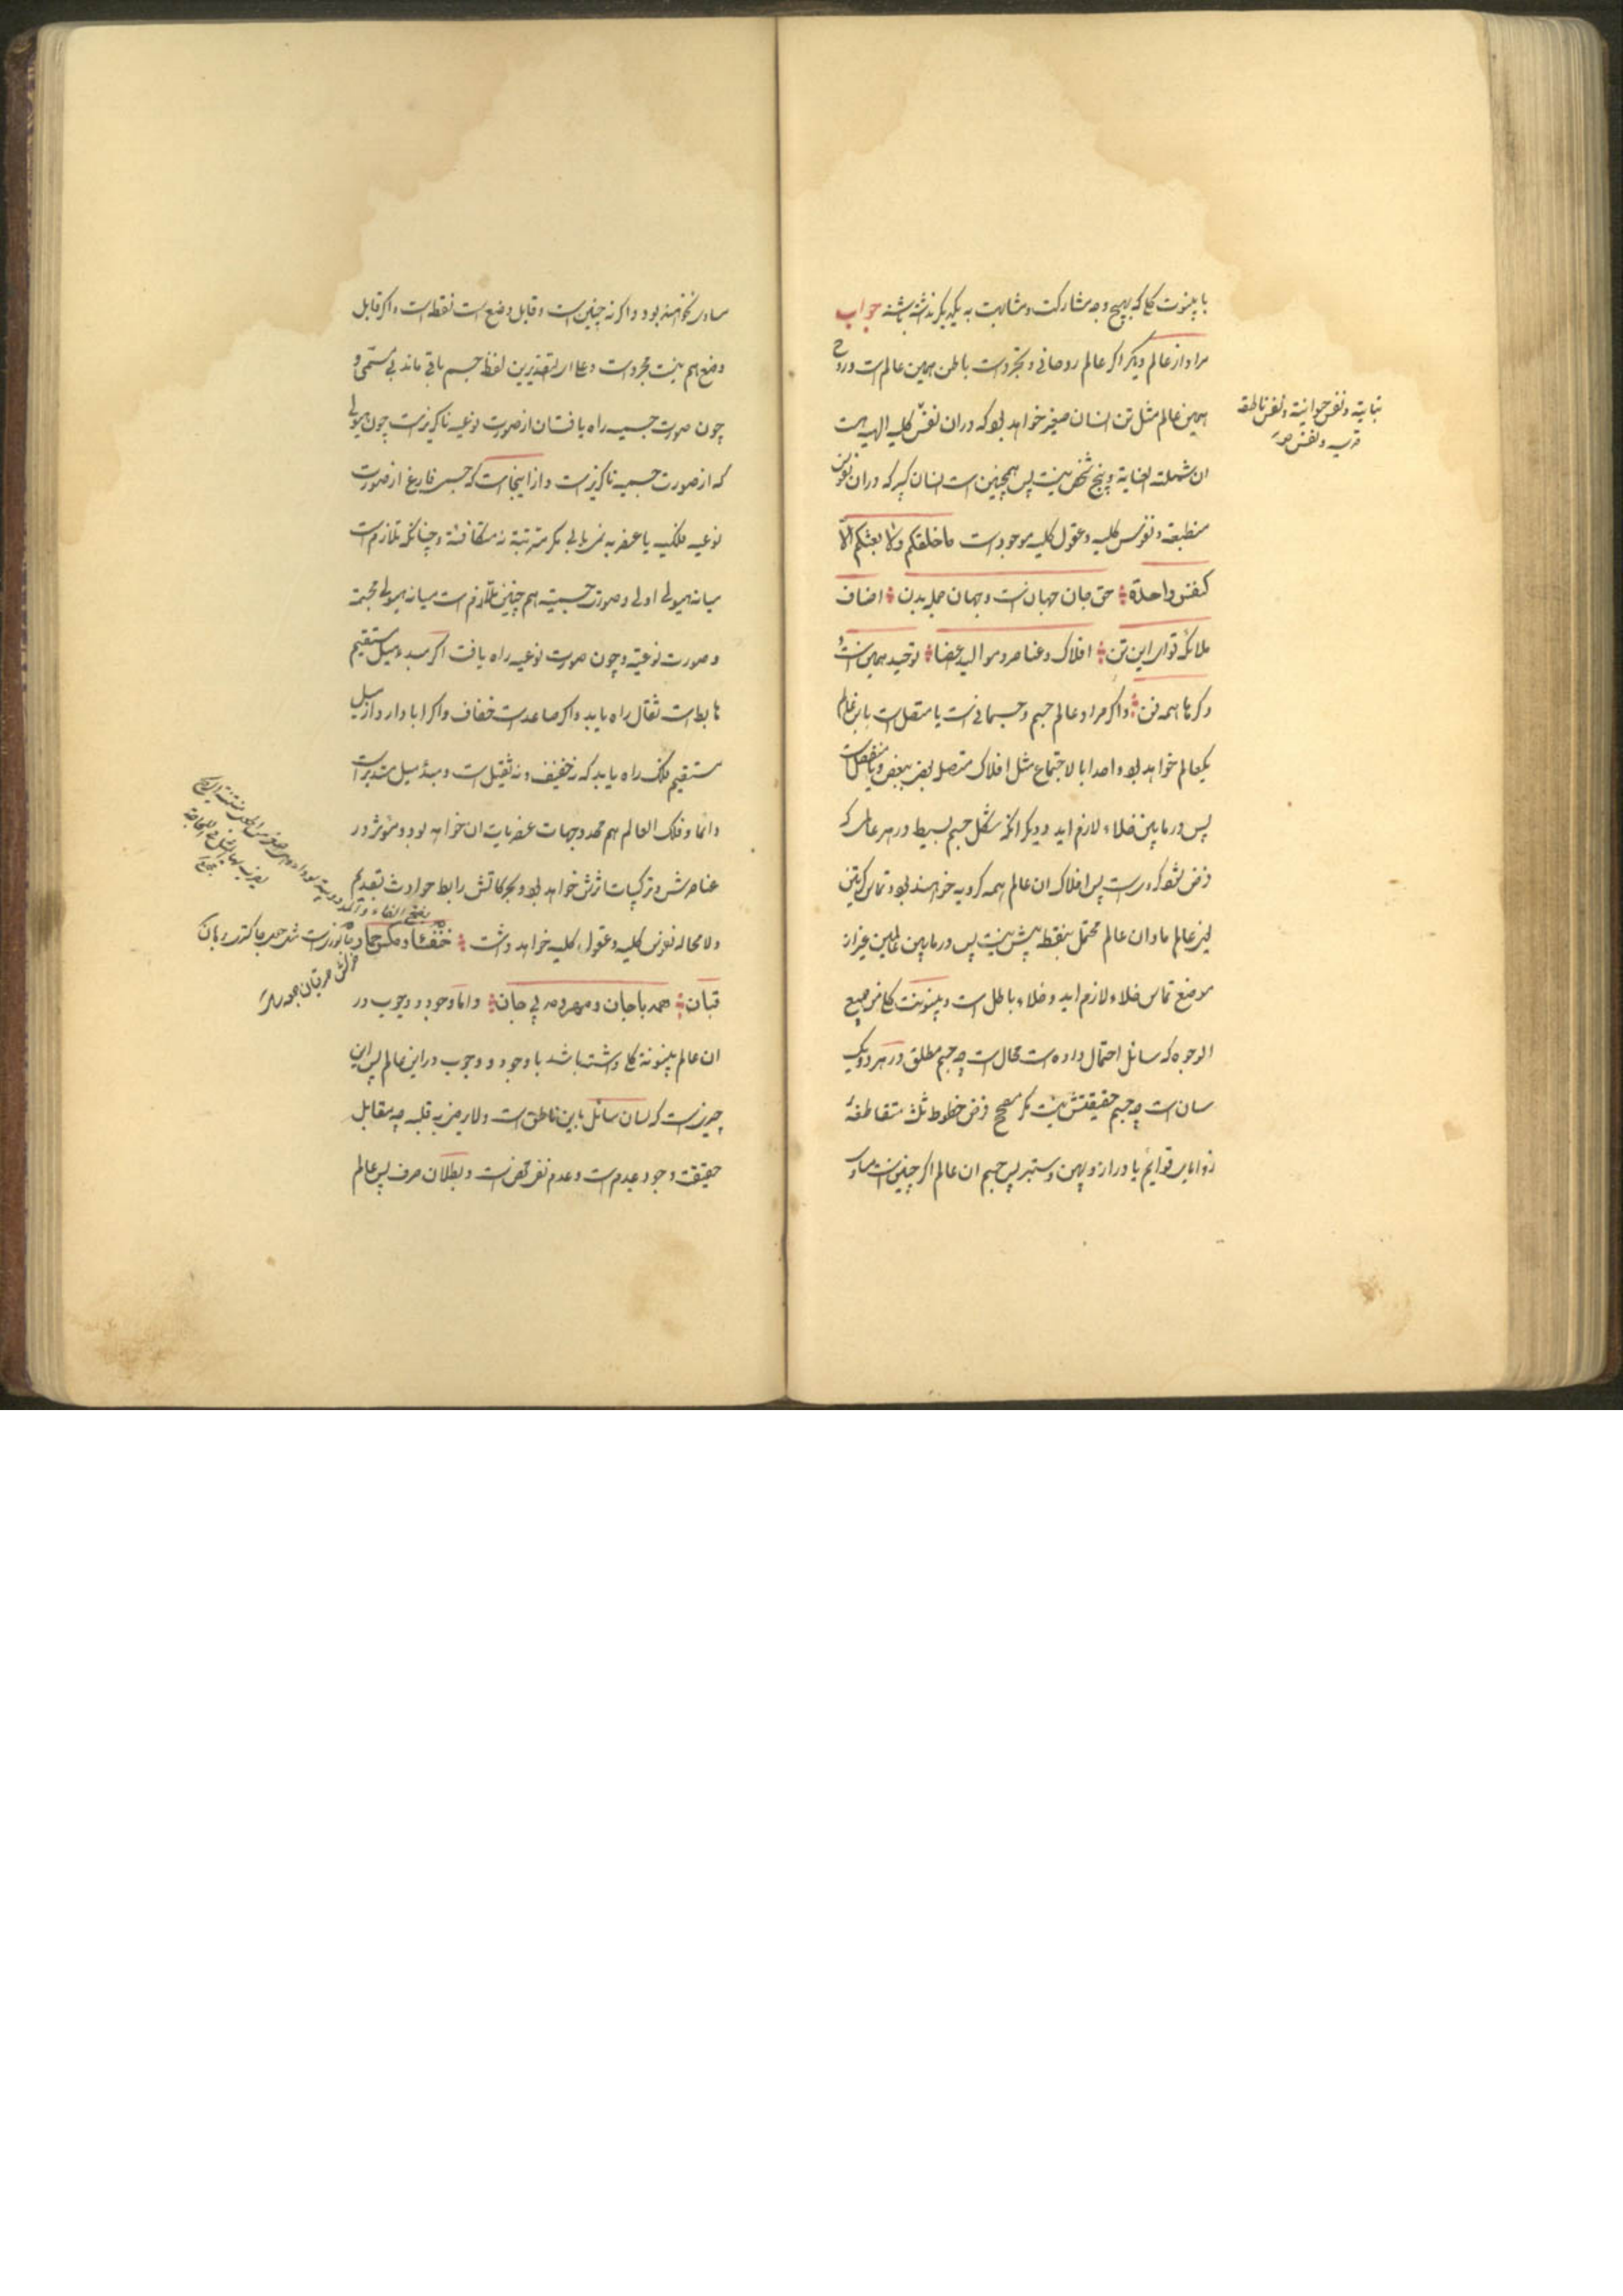 با بینونت کلی که بهیچ وجه مشارکت و مشابهت به یکدیگر نداشته باشند جواب
مراد از عالم دیگر اگر عالم روحانی و تجرد است باطن همین عالم است و روح
همین عالم مثل تن انسان صغیر خواهد بود که در آن نفس کلیه الهیه هست
نباتیة و نفس حیوانیة و نفس ناطقه
قدسیه و نفس
ان شملته العنایة و پنج شخص نیست پس همچنین است انسان کبیر که در آن نفوس
منطبعه و نفوس کلیه و عقول کلیه موجود است ما خلقکم ولا بعثکم الا
کنفس واحدة حق جان جهان است و جهان جمله بدن اصناف
ملائکه قوای این تن افلاک و عناصر و موالید اعضا توحید همین است و
دگرها همه فن و اگر مراد عالم جسم و جسمانی است یا متصل است باین عالم
یکعالم خواهد بود واحدا بالاجتماع مثل افلاک متصل بعض ببعض و یا منفصل است
پس در مابین خلاء لازم اید و دیگر انکه شکل جسم بسیط در هر عالمی که
فرض شود کره است پس افلاک ان عالم همه کرویه خواهند بود و تماس کرتین
این عالم با ان عالم محتمل بنقطه بیش نیست پس در مابین عالمین غیر از
موضع تماس خلاء لازم اید و خلاء باطل است و بینونت کلی من جمیع
الوجوه که سائل احتمال داده است محال است چه جسم مطلق در هر دو یک
سان است چه جسم حقیقتش نیست مگر مصحح فرض خطوط ثلث متقاطعة
زوایای قوایم یا دراز و پهن و ستبر پس جسم ان عالم اگر چنین است مساوی
نخواهند بود و اگر نه چنین است و قابل وضع است نقطه است و اگر قابل
وضع هم نیست مجرد است و علی ای التقدیرین لفظ جسم باقی ماند بی مسمی و
چون صورت جسمیه راه یافت از صورت نوعیه ناگزیر است چون هیولی
که از صورت جسمیه ناگزیر است و از اینجاست که جسم فارغ از صورت
نوعیه فلکیه یا عنصریه نمی یابی مگر مترتبة نه متکافئة و چنانکه تلازم است
میانه هیولی اولی و صورت جسمیه هم چنین تلازم است میانه هیولی مجسمه
و صورت نوعیه و چون صورت نوعیه راه یافت اگر مبدء میل مستقیم
هابط است ثقال راه یابد و اگر صاعد است خفاف و اگر ابا دارد از میل
مستقیم فلک راه یابد که نه خفیف و نه ثقیل است و مبدء میل مستدیر است
دائما و فلک العالم هم محدد جهات عنصریات ان خواهد بود و مؤثر در
عناصرش و ترکیبات اثرش خواهد بود و بحرکاتش رابط حوادث بقدیم
ولا محاله نفوس کلیه و عقول کلیه خواهد داشت
قبان همه با جان و مهرومه بی جان و اما وجود و وجوب در
ان عالم بینونة کلی داشته باشد با وجود و وجوب در این عالم پس این
چیزیست که لسان سائل باین ناطق است چه مقابل
حقیقت وجود عدم است و عدم نفی محض است و بطلان صرف پس عالم
بفتح الفاء